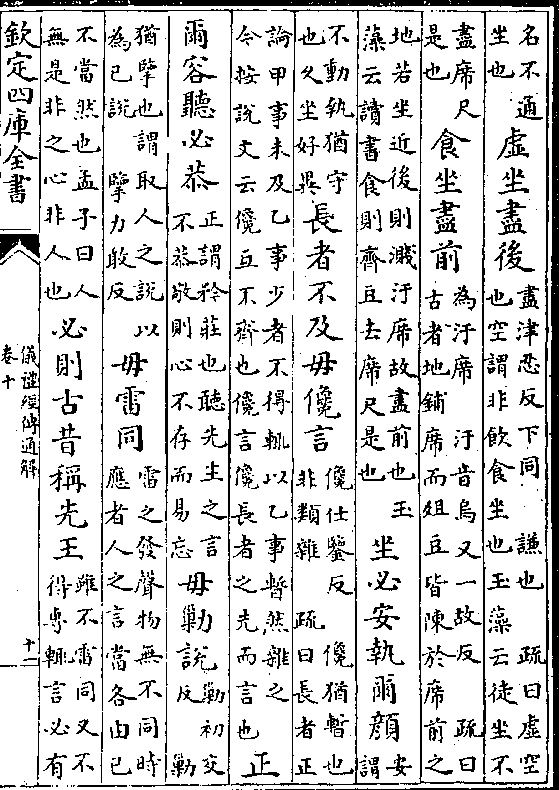 名不通坐也虛坐盡後盡津忍反下同 謙也 疏曰虛空也空謂非飲食坐也玉藻云徒坐不
盡席尺是也食坐盡前為汙席 汙音烏又一故反 疏曰古者地鋪席而俎豆皆陳於席前之
地若坐近後則濺汙席故盡前也玉藻云讀書食則齊豆去席尺是也坐必安執爾顏安謂
不動執猶守也久坐好異長者不及毋儳言儳仕鑒反 儳猶暫也非類雜 疏曰長者正
論甲事未及乙事少者不得輒以乙事暫然雜之今按說文云儳互不齊也儳言儳長者之先而言也正
爾容聽必恭正謂矜莊也聽先生之言不恭敬則心不存而易忘毋勦說勦初交反 勦
猶擥也謂取人之說以為已說 擥力敢反毋雷同雷之發聲物無不同時應者人之言當各由已
不當然也孟子曰人無是非之心非人也必則古昔稱先王雖不雷同又不得專輒言必有
欽定四庫全書
儀禮經傳通解
卷十
十二